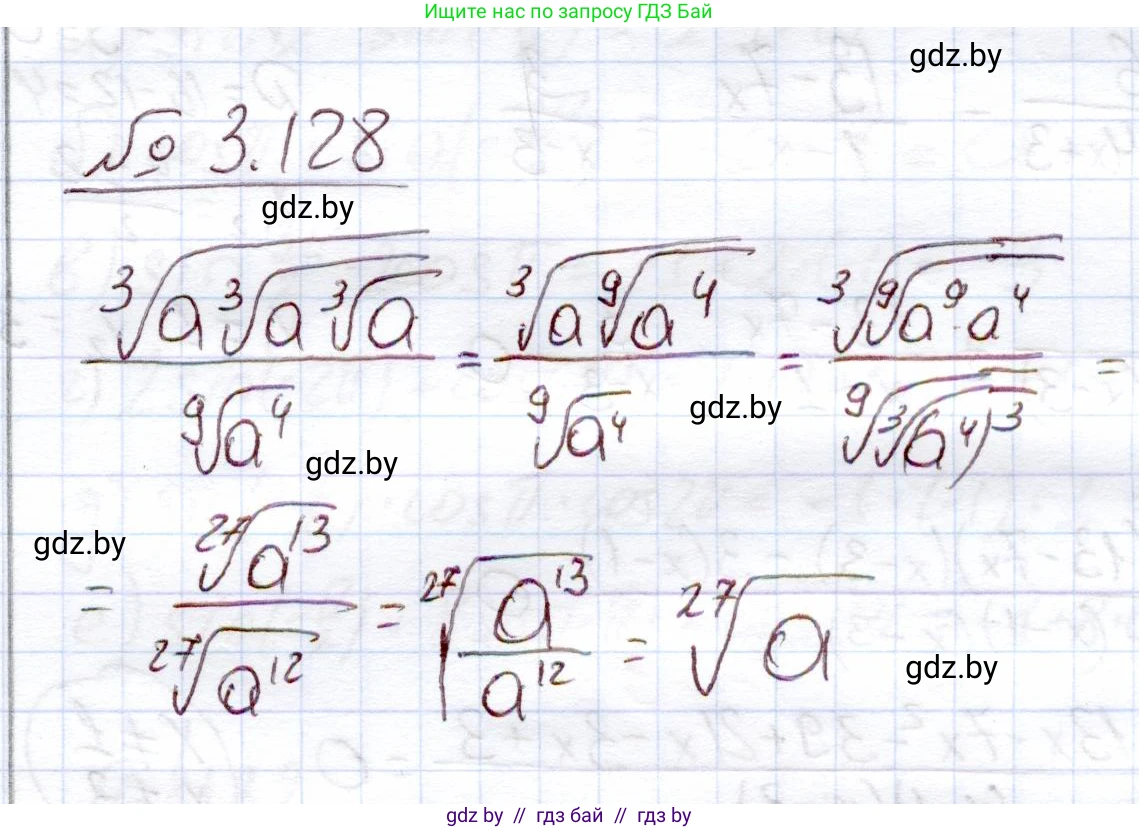 Ищите нас по запросу ГДЗ Бай
gdz.by
№ 3.128
gdz.by
∛(a∛(a∛a)) / ⁹√(a⁴) = ∛(a ⁹√(a⁴)) / ⁹√(a⁴) = ∛(⁹√(a⁹·a⁴)) / ⁹√(∛((a⁴)³)) =
gdz.by
gdz.by
gdz.by
= ²⁷√(a¹³) / ²⁷√(a¹²) = ²⁷√(a¹³ / a¹²) = ²⁷√a
gdz.by
gdz.by // гдз бай // гдз.by